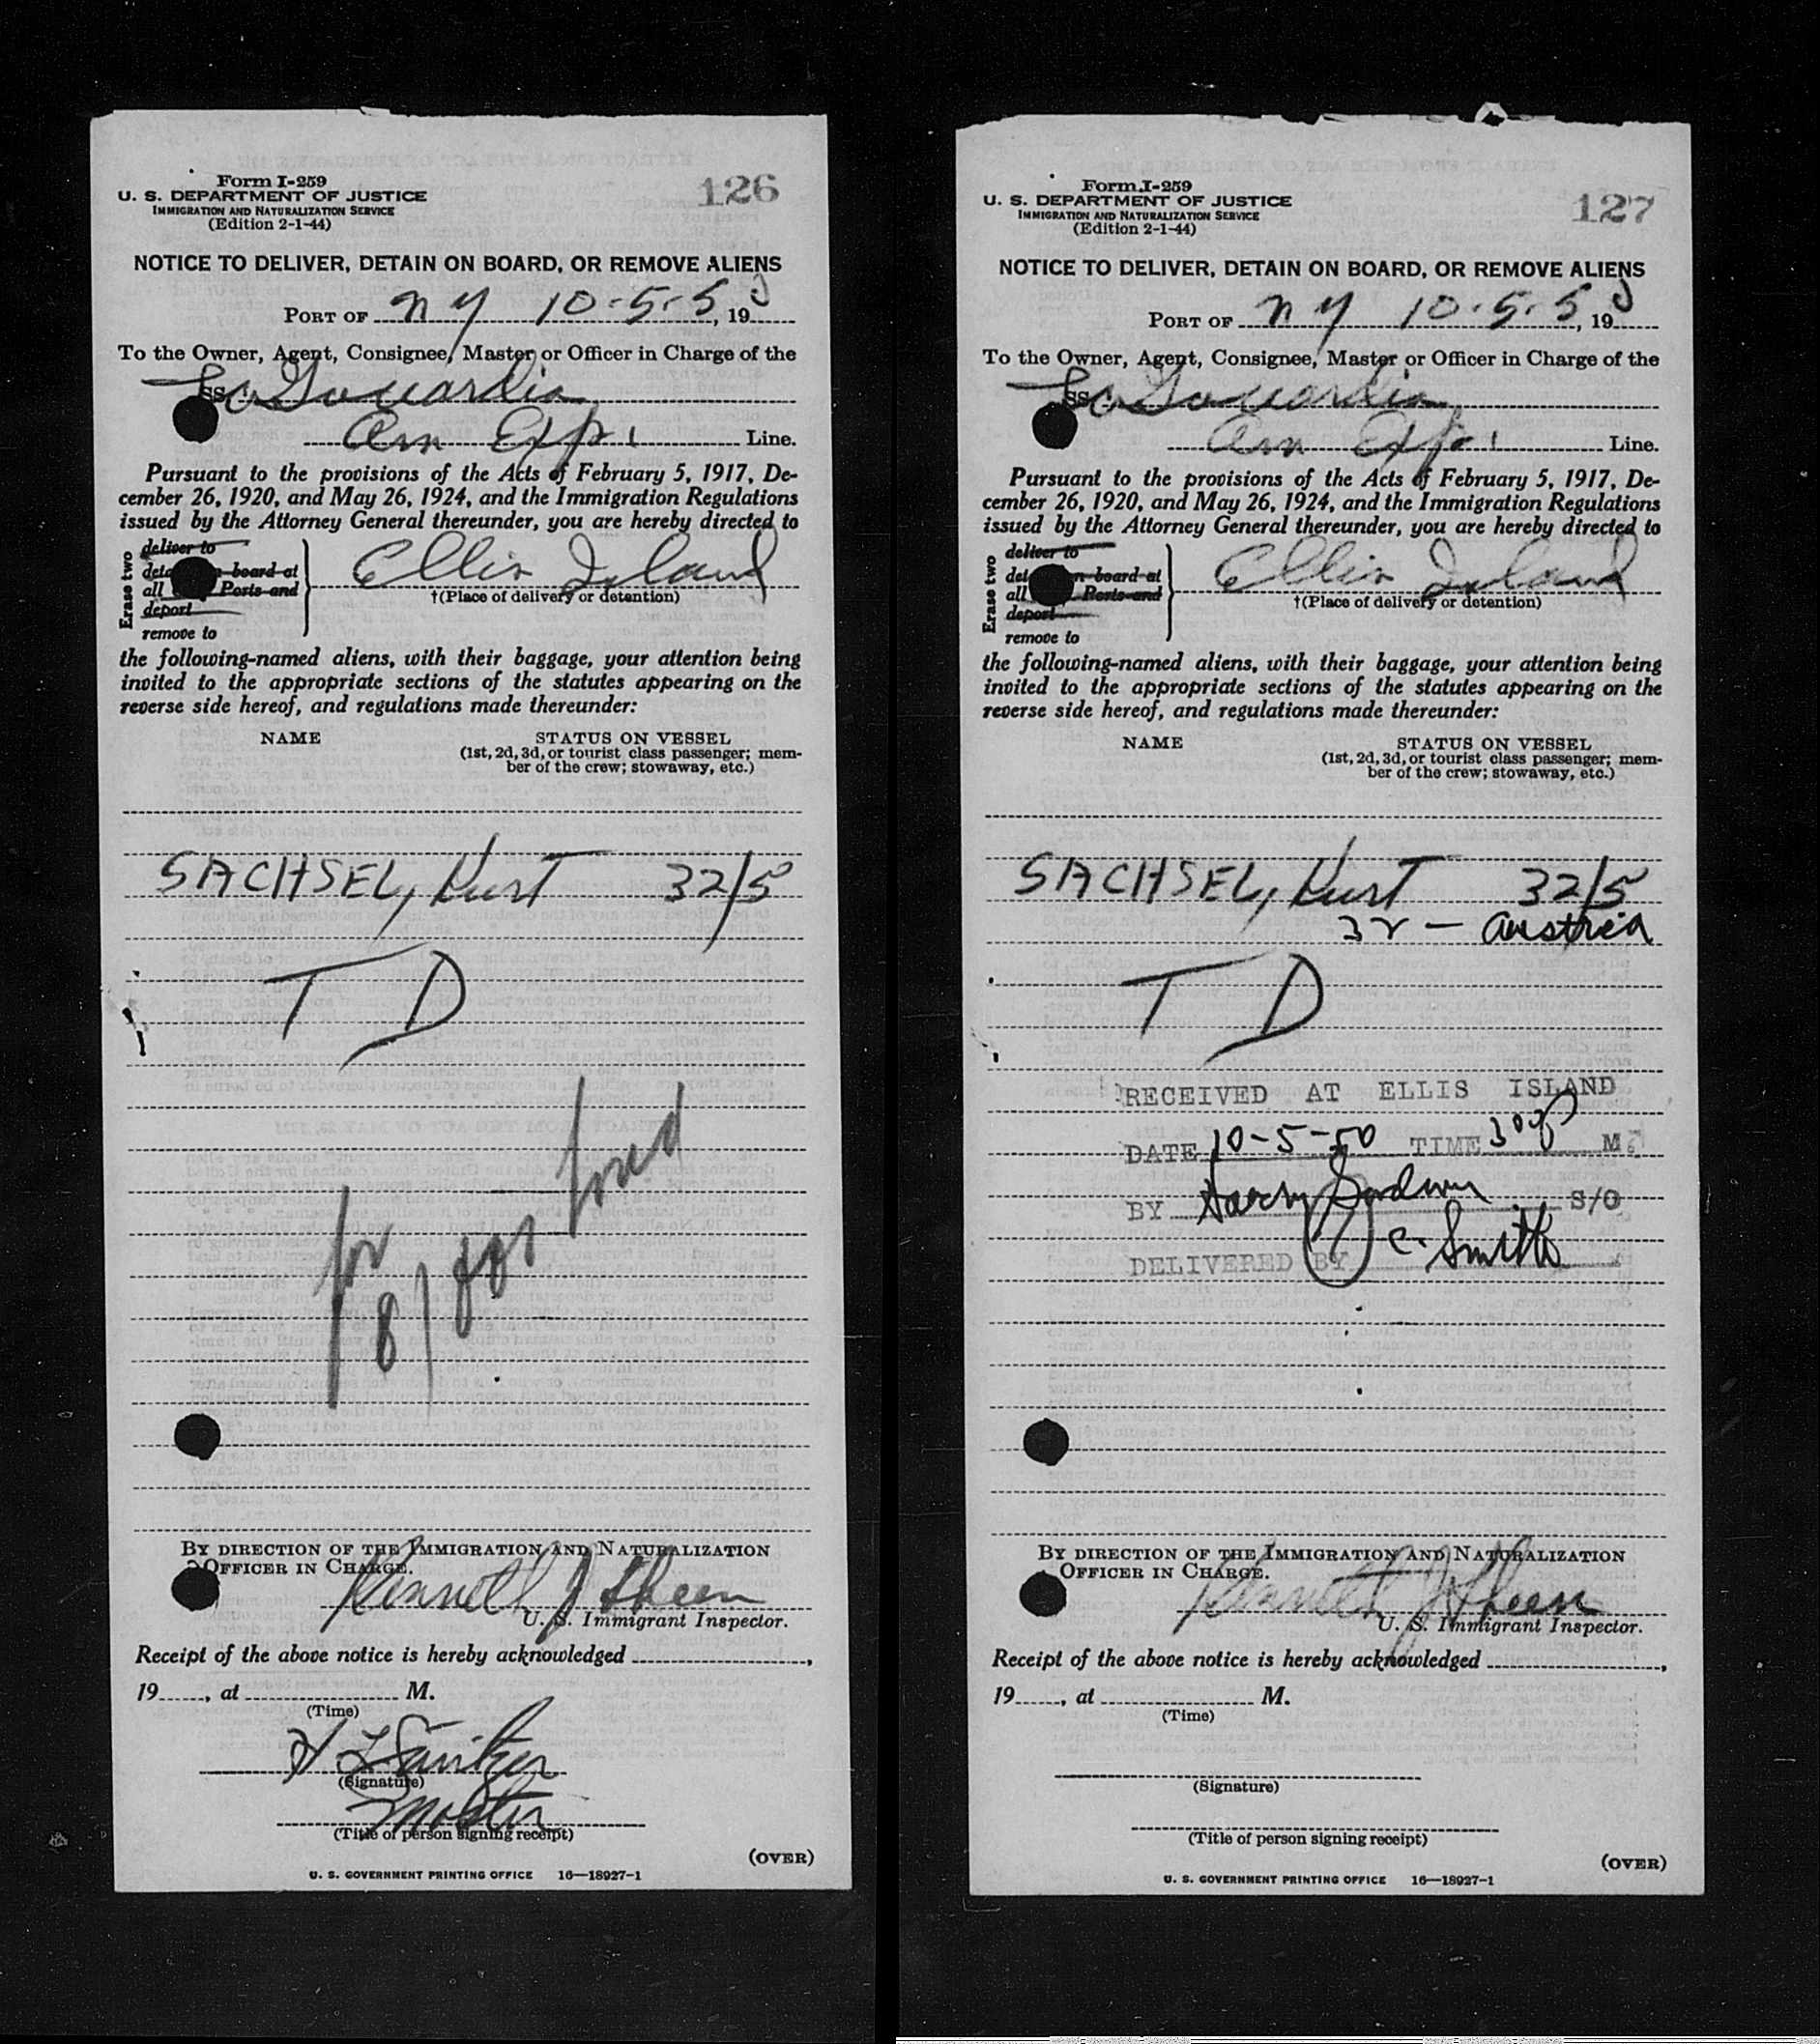 Form I-259
U. S. DEPARTMENT OF JUSTICE
IMMIGRATION AND NATURALIZATION SERVICE
(Edition 2-1-44)
126
NOTICE TO DELIVER, DETAIN ON BOARD, OR REMOVE ALIENS
PORT OF NY 10-5-5 , 19
To the Owner, Agent, Consignee, Master or Officer in Charge of the
SS La Guardia
Am Exp. Line.
Pursuant to the provisions of the Acts of February 5, 1917, De-
cember 26, 1920, and May 26, 1924, and the Immigration Regulations
issued by the Attorney General thereunder, you are hereby directed to
Erase two
deliver to
board at
all Ports and
deport
remove to
Ellis Island
†(Place of delivery or detention)
the following-named aliens, with their baggage, your attention being
invited to the appropriate sections of the statutes appearing on the
reverse side hereof, and regulations made thereunder:
NAME STATUS ON VESSEL
(1st, 2d, 3d, or tourist class passenger; mem-
ber of the crew; stowaway, etc.)
SACHSEL, Kurt 32/5
T D
BY DIRECTION OF THE IMMIGRATION AND NATURALIZATION
OFFICER IN CHARGE.
Kenneth J Sheen
U. S. Immigrant Inspector.
Receipt of the above notice is hereby acknowledged ,
19 , at M.
(Time)
(Signature)
Master
(Title of person signing receipt)
(OVER)
U. S. GOVERNMENT PRINTING OFFICE 16—18927-1
Form I-259
U. S. DEPARTMENT OF JUSTICE
IMMIGRATION AND NATURALIZATION SERVICE
(Edition 2-1-44)
127
NOTICE TO DELIVER, DETAIN ON BOARD, OR REMOVE ALIENS
PORT OF NY 10-5-5 , 19
To the Owner, Agent, Consignee, Master or Officer in Charge of the
SS La Guardia
Am Exp. Line.
Pursuant to the provisions of the Acts of February 5, 1917, De-
cember 26, 1920, and May 26, 1924, and the Immigration Regulations
issued by the Attorney General thereunder, you are hereby directed to
Erase two
deliver to
board at
all Ports and
deport
remove to
Ellis Island
†(Place of delivery or detention)
the following-named aliens, with their baggage, your attention being
invited to the appropriate sections of the statutes appearing on the
reverse side hereof, and regulations made thereunder:
NAME STATUS ON VESSEL
(1st, 2d, 3d, or tourist class passenger; mem-
ber of the crew; stowaway, etc.)
SACHSEL, Kurt 32/5
32 — Austria
T D
RECEIVED AT ELLIS ISLAND
DATE 10-5-50 TIME M
BY Harry S/O
DELIVERED BY C. Smith
BY DIRECTION OF THE IMMIGRATION AND NATURALIZATION
OFFICER IN CHARGE.
Kenneth J Sheen
U. S. Immigrant Inspector.
Receipt of the above notice is hereby acknowledged ,
19 , at M.
(Time)
(Signature)
(Title of person signing receipt)
(OVER)
U. S. GOVERNMENT PRINTING OFFICE 16—18927-1